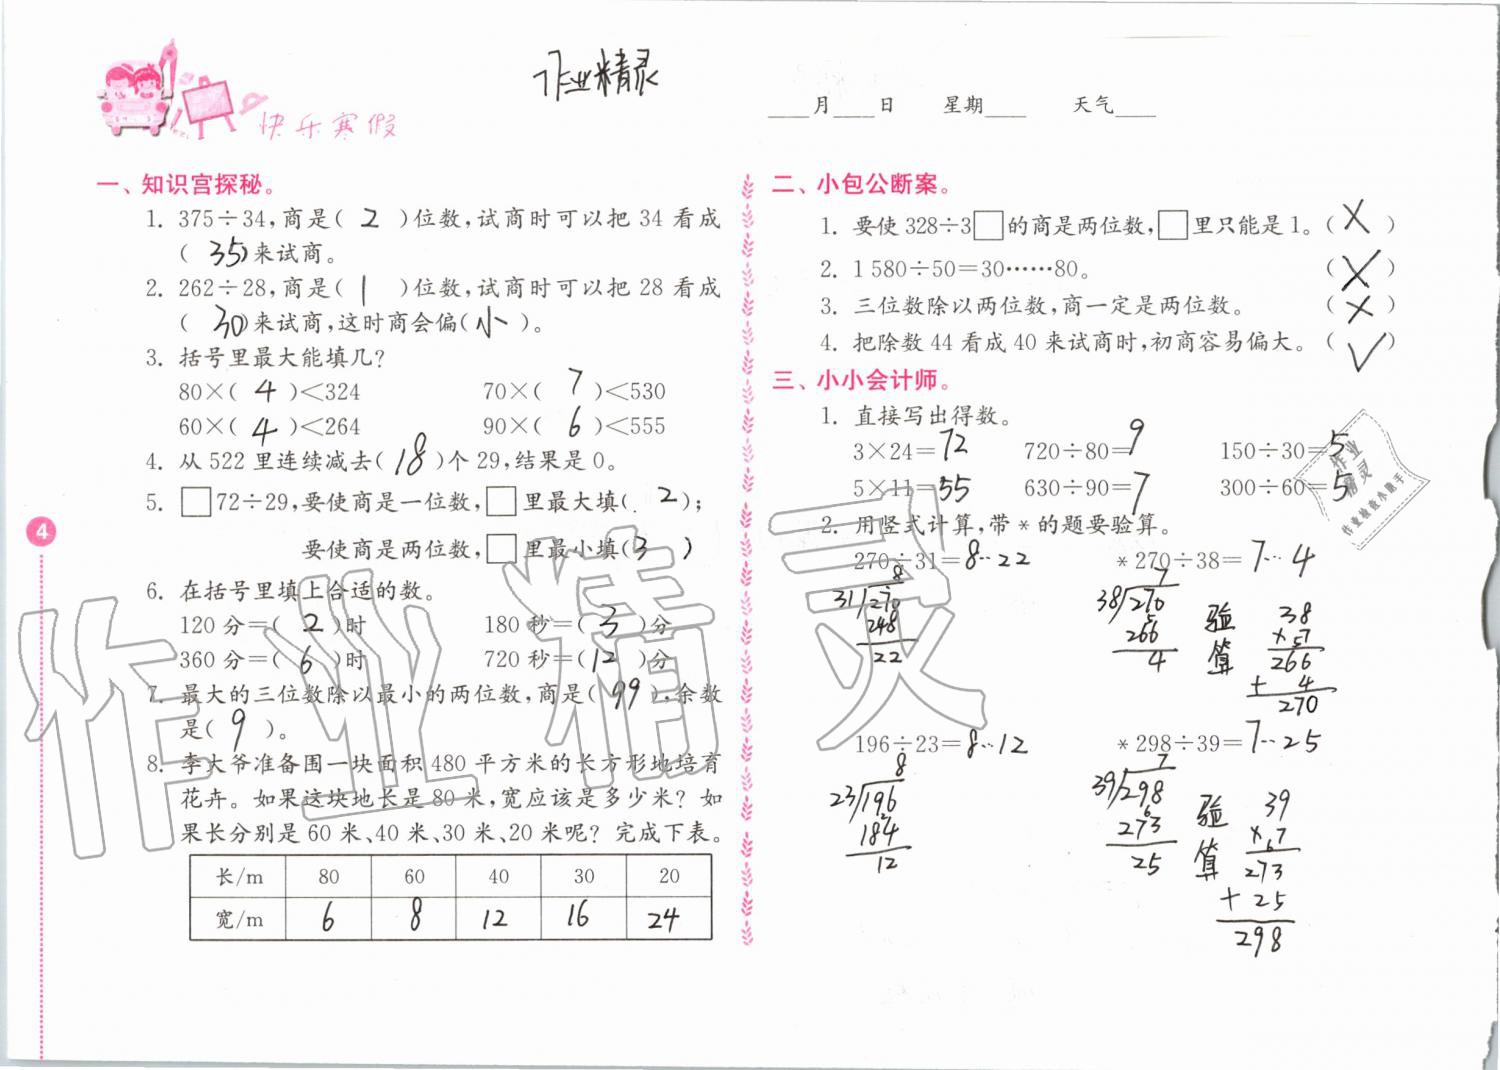 作业精灵
快乐寒假
____月____日 星期____ 天气____
一、知识宫探秘。
1. 375÷34,商是( 2 )位数,试商时可以把 34 看成
( 35 )来试商。
2. 262÷28,商是( 1 )位数,试商时可以把 28 看成
( 30 )来试商,这时商会偏( 小 )。
3. 括号里最大能填几?
80×( 4 )<324 70×( 7 )<530
60×( 4 )<264 90×( 6 )<555
4. 从 522 里连续减去( 18 )个 29,结果是 0。
5. □72÷29,要使商是一位数,□里最大填( 2 );
要使商是两位数,□里最小填( 3 )
6. 在括号里填上合适的数。
120 分=( 2 )时 180 秒=( 3 )分
360 分=( 6 )时 720 秒=( 12 )分
7. 最大的三位数除以最小的两位数,商是( 99 ),余数
是( 9 )。
8. 李大爷准备围一块面积 480 平方米的长方形地培育
花卉。如果这块地长是 80 米,宽应该是多少米? 如
果长分别是 60 米、40 米、30 米、20 米呢? 完成下表。
长/m 80 60 40 30 20
宽/m 6 8 12 16 24
4
二、小包公断案。
1. 要使 328÷3□的商是两位数,□里只能是 1。( × )
2. 1 580÷50=30……80。 ( × )
3. 三位数除以两位数,商一定是两位数。 ( × )
4. 把除数 44 看成 40 来试商时,初商容易偏大。( ✓ )
三、小小会计师。
1. 直接写出得数。
3×24=72 720÷80=9 150÷30=5
5×11=55 630÷90=7 300÷60=5
2. 用竖式计算,带 * 的题要验算。
270÷31=8…22 * 270÷38=7…4
8
31 270
248
22
7
38 270
266
4
验算
38
×57
266
+ 4
270
196÷23=8…12 * 298÷39=7…25
8
23 196
184
12
7
39 298
273
25
验算
39
×67
273
+ 25
298
作业精灵
作业精灵
作业检查小助手